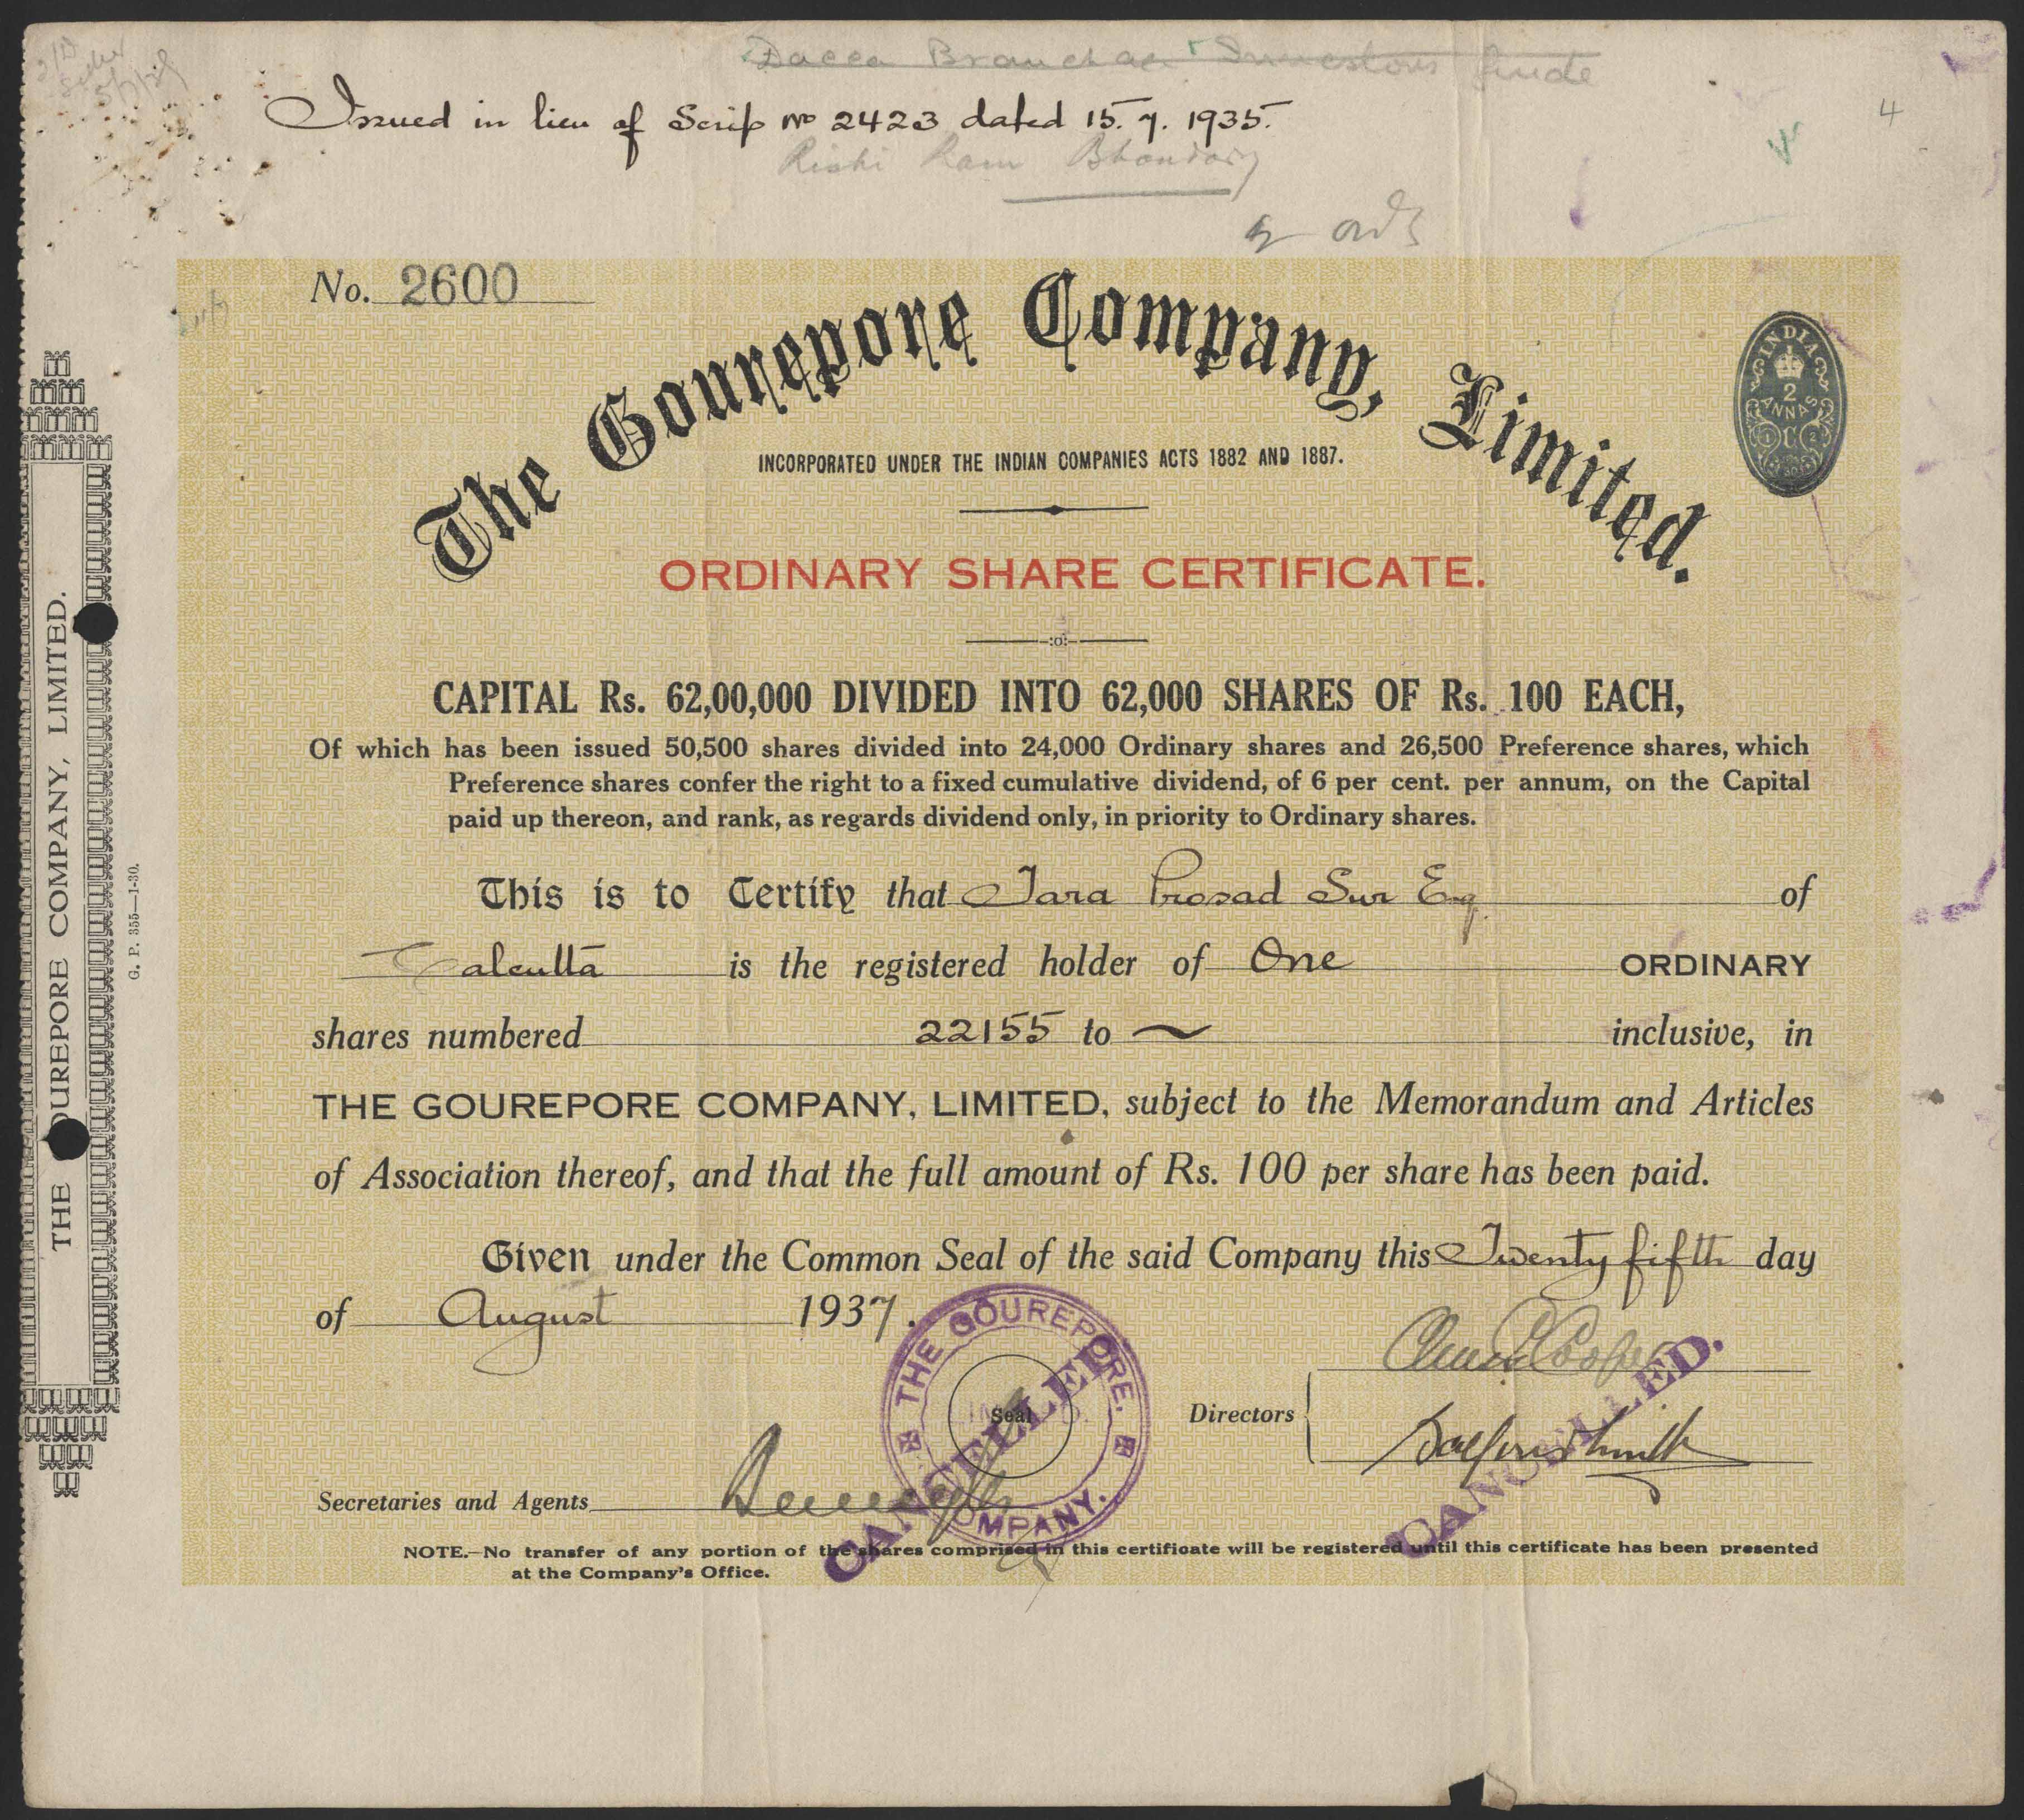 Dacca Branch
Issued in lieu of Scrip No 2423 dated 15.7.1935.
Rishi Ram Bhandary
4
No. 2600
The Gourepore Company, Limited.
INDIA
2
ANNAS
INCORPORATED UNDER THE INDIAN COMPANIES ACTS 1882 AND 1887.
ORDINARY SHARE CERTIFICATE.
—:o:—
CAPITAL Rs. 62,00,000 DIVIDED INTO 62,000 SHARES OF Rs. 100 EACH,
Of which has been issued 50,500 shares divided into 24,000 Ordinary shares and 26,500 Preference shares, which
Preference shares confer the right to a fixed cumulative dividend, of 6 per cent. per annum, on the Capital
paid up thereon, and rank, as regards dividend only, in priority to Ordinary shares.
This is to Certify that Tara Prosad Sur Esq of
Calcutta is the registered holder of One ORDINARY
shares numbered 22155 to ~ inclusive, in
THE GOUREPORE COMPANY, LIMITED, subject to the Memorandum and Articles
of Association thereof, and that the full amount of Rs. 100 per share has been paid.
Given under the Common Seal of the said Company this Twenty fifth day
of August 1937.
THE GOUREPORE COMPANY.
Seal
CANCELLED.
Directors
CANCELLED.
Secretaries and Agents
NOTE.—No transfer of any portion of the shares comprised in this certificate will be registered until this certificate has been presented
at the Company's Office.
THE GOUREPORE COMPANY, LIMITED.
G. P. 355—1-30.